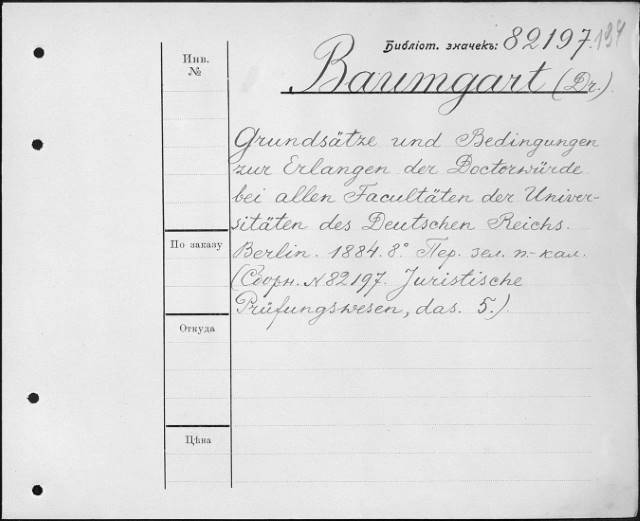 Библіот. значекъ: 82197. 194
Инв.
№
Baumgart (Dr.).
Grundsätze und Bedingungen
zur Erlangen der Doctorwürde
bei allen Facultäten der Univer-
sitäten des Deutschen Reichs.
По заказу
Berlin. 1884. 8° Пер. зел. п.-кал.
(Сборн. № 82197. Juristische
Prüfungswesen, das. 5.)
Откуда
Цѣна